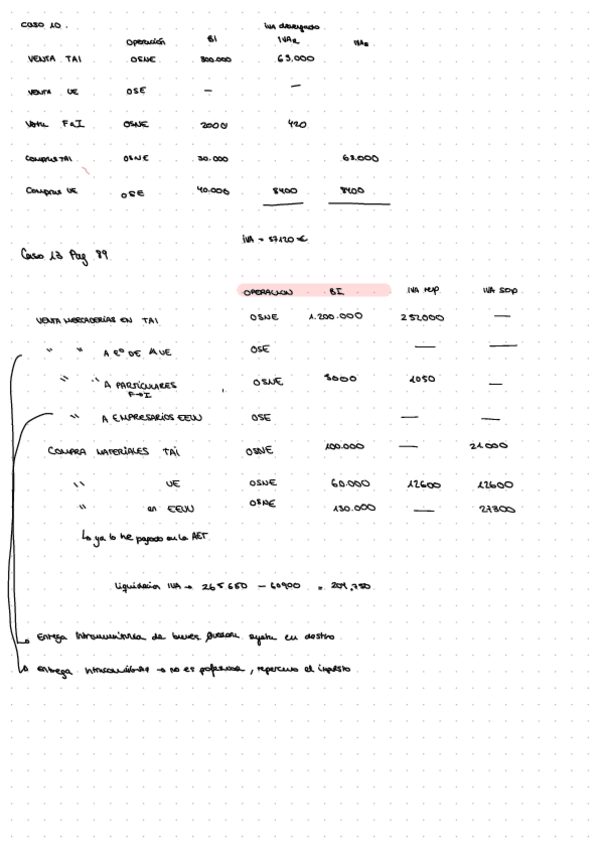 Caso 10.
iva devengado
Operación BI IVAR IVAS
VENTA TAI OSNE 300.000 63.000
VENTA UE OSE — —
Venta F→I OSNE 2000 420
Compras TAI OSNE 30.000 63.000
Compras UE OSE 40.000 8400 8400
IVA = 57120 €
Caso 13 Pag 89
OPERACION BI IVA rep IVA sop
VENTA MERCADERÍAS EN TAI OSNE 1.200.000 252000 —
" " A Eº DE UE OSE — —
" " A PARTICULARES OSNE 5000 1050 —
F→I
" A EMPRESARIOS EEUU OSE — —
COMPRA MATERIALES TAI OSNE 100.000 — 21000
" UE OSNE 60.000 12600 12600
" en EEUU OSNE 130.000 — 27300
↳ ya lo he pagado en la AET
Liquidación IVA → 265.650 - 60900 = 204,750
Entrega Intracomunitaria de bienes sujeta en destino
entrega intracomunitaria → no es profesional, repercuto el impuesto